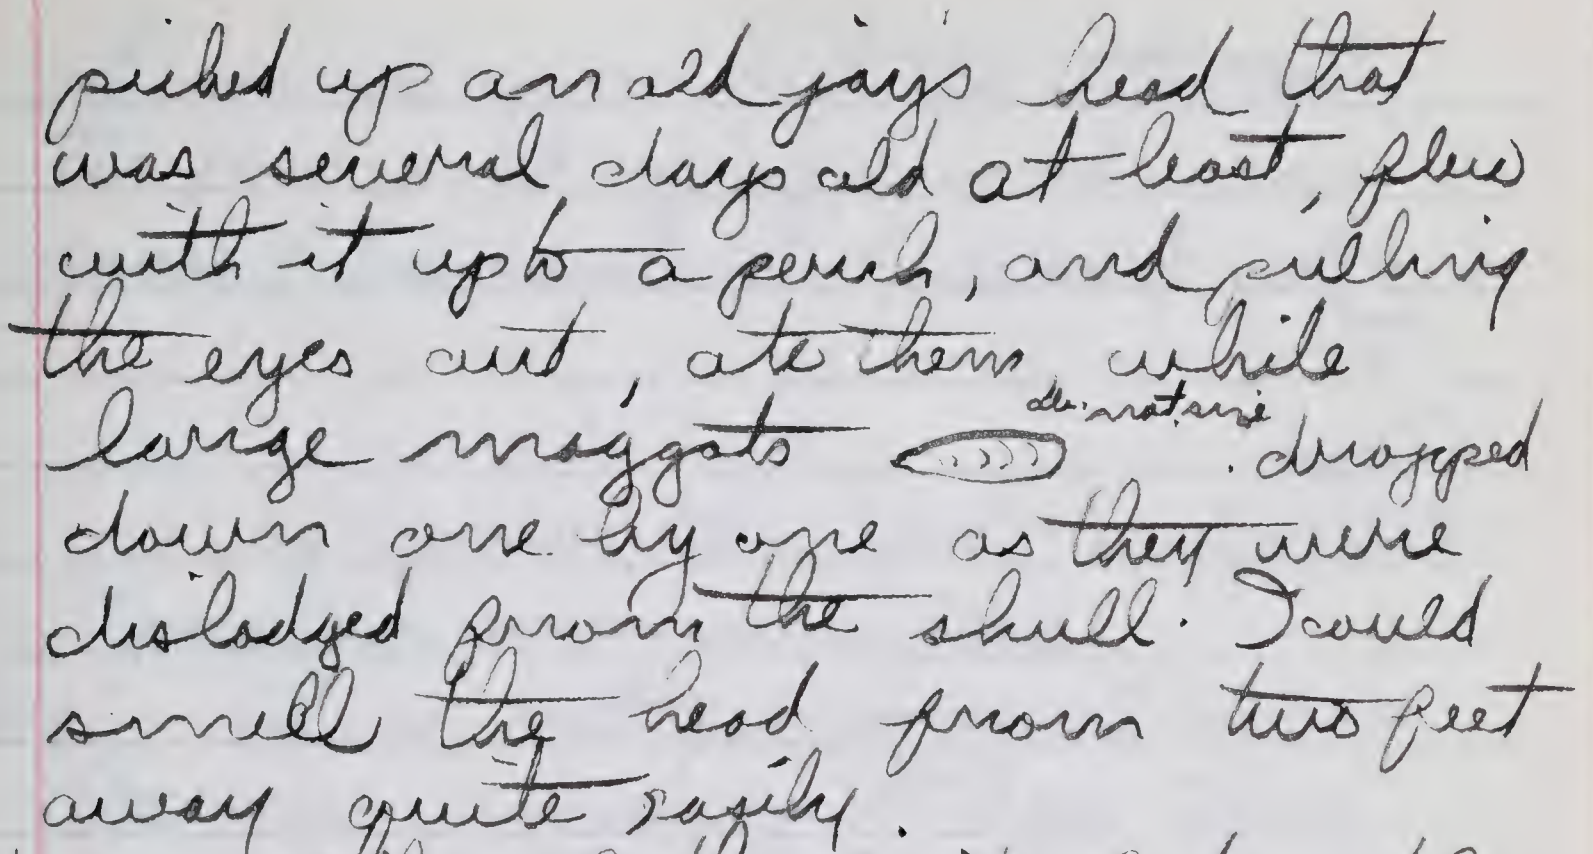 picked up an old jay's head that
was several days old at least, flew
with it up to a perch, and pulling
the eyes out, ate them while
large maggots nat. size dropped
down one by one as they were
dislodged from the skull. I could
smell the head from two feet
away quite easily.